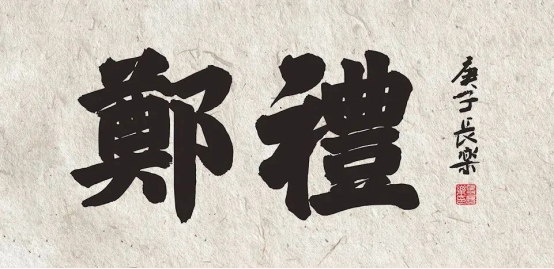 禮鄭
庚子長樂